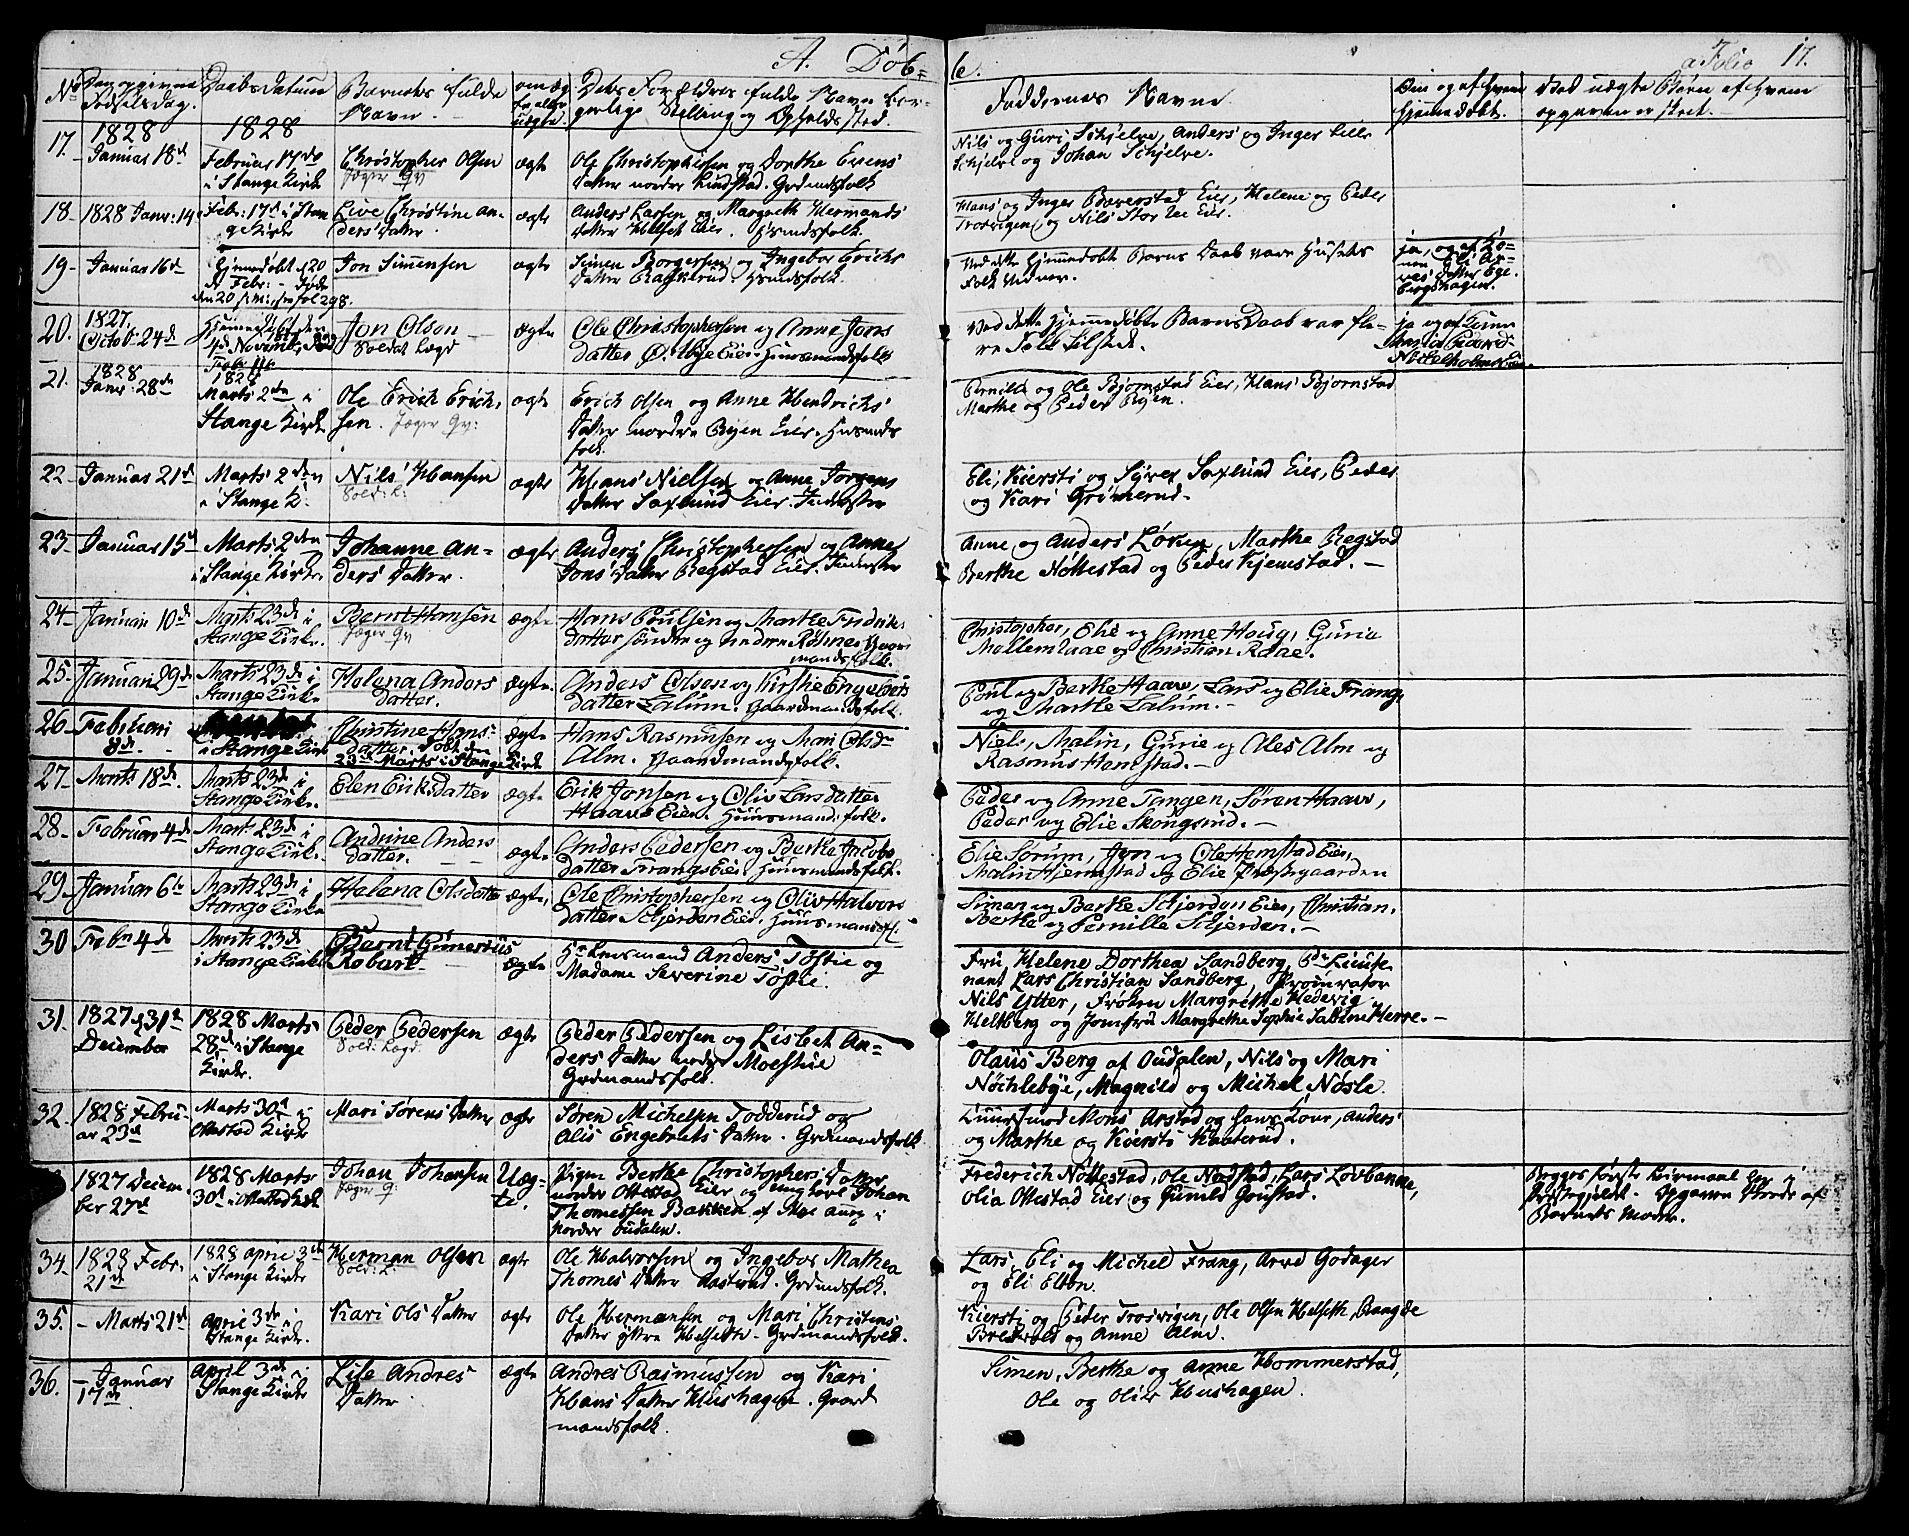 A. Døb=
te.
a Folio 17.
No
Den opgivne
Fødselsdag.
Daabs Datum
Barnets fulde
Navn.
om æg-
te eller
uægte.
Dets Forældres fulde Navn bor-
gerlige Stilling og Opholdssted.
Faddernes Navne
Om og af hvem
hjemmedøbt.
Ved uægte Børn af hvem
opgaven er skeet.
17.
1828
Januar 18de
1828
Februar 17de
i Stange Kirke
Christopher Olsen
Jæger Gv
ægte
Ole Christophersen og Dorthe Evens
Datter nordre Lindstad. Grdmandsfolk
Nils og Guri Schjelve, Anders og Inger Lille
Schjelve og Johan Schjelve.
18.
1828 Janr: 14
Febr: 17de i Stan
ge Kirke
Live Christine An-
ders Datter
ægte
Anders Larsen og Margreth Hermands
Datter Helset Eier. Husmdsfolk.
Hans og Inger Bæverstad Eier, Helene og Peder
Trosvigen og Nils Stor Lee Eier.
19
Januar 16de
Hjemmedøbt d 20
de Febr:
Jon Simensen
ægte
Simen Borgersen og Ingebor Erichs
Datter Bakkerud. Husmdsfolk.
Ved dette hjemmedøbt Barns Daab vare Husets
Folk Vidner.
ja, og af Ko-
nen Eli Ar-
nes Datter Ege-
bergshagen.
20.
1827
Octob: 24de
Hjemmedøbt den
4de November
Jon Olsen
Soldat Lægd
ægte
Ole Christophersen og Anne Jons
datter Ø. Mye Eier. Huusmandsfolk
Ved dette hjemmedøbte Barns Daab var fle-
re Folk tilstede.
21.
1828
Janr: 28de
1828
Marts 2de i
Stange Kirke
Ole Erich Erich-
sen. Jæger Gv:
ægte
Erich Olsen og Anne Hendrichs
Datter nordre Ryen Eier. Husmds
folk.
Pernille og Ole Bjørnstad Eier, Hans Bjørnstad
Marthe og Peder Ryen.
22
Januar 21de
Marts 2den
i Stange K.
Nils Hansen
Sold: L:
ægte
Hans Nielsen og Anne Jørgens
Datter Saxlund Eier. Inderster
Eli, Kiersti og Syver Saxlund Eier, Peder
og Kari Grimerud.
23
Januar 15de
Marts 2den
i Stange Kirke
Johanne An-
ders Datter.
ægte
Anders Christophersen og Anne
Jons Datter Regstad Eier. Inderster
Anne og Anders Løken, Marthe Regstad
Berthe Nøttestad og Peder Kjemstad.
24
Januari 10de
Marts 23de i
Stange Kirke.
Bernt Hansen
Jæger Gv
ægte
Hans Poulsen og Marthe Fredriks
datter
mandsfolk.
Christopher, Elie og Anne Houg, Guria
Mollemlaae og Christian Raae.
25.
Januari 29de
Marts 23de i
Stange Kirke
Helena Anders
datter.
ægte.
Anders Olson og Kirstie Engebrets
datter Lalum. Gaardmandsfolk.
Poul og Berthe Haave, Lars og Elie Frang,
og Marthe Lalum.
26
Februari
8de
i Stange Kirke
Christine Hans-
datter. Døbt den
23de Marts i Stange Kirke
ægte
Hans Rasmusen og Mari Olsdr
Alm. Gaardmandsfolk.
Niels, Malin, Gurie og Ales Alm og
Rasmus Hemstad.
27
Marts 18de
Marts 23de i
Stange Kirke.
Elen Eriksdatter
ægte
Erik Jonsen og Oliv Larsdatter
Haave Eier. Huusmandsfolk.
Peder og Anne Tangen, Søren Haave,
Peder og Elie Skongsrud.
28
Februar 4de
Marts 23de i
Stange Kirke.
Andrine Anders
datter.
ægte
Anders Pedersen og Berthe Jacobs
datter Frangs Eier. Huusmandsfolk.
Elie Sørum, Jon og Ole Hemstad Eier,
Malin Hjemstad og Elie Præstegaarden
29
Januar 6te
Marts 23de i
Stange Kirke
Helena Olsdatter
ægte,
Ole Christophersen og Oliv Halvors
datter Schjerden Eier. Huusmandsfl.
Simen og Berthe Schjerden Eier, Christian,
Berthe og Pernille Schjerden.
30
Febr 4de
Marts 23de
i Stange Kirke
Bernt Gunerius
Robart
ægte
Anders Tostie og
Madame Severine Tostie.
Fru Helene Dorthea Sandberg, Pr: Lieute-
nant Lars Christian Sandberg, Procurator
Nils Ytter, Frøken Margrethe Hedevig
Heltberg og Jomfru Margrethe Sophie Sabine Herre.
31.
1827 31te
December
1828 Marts
28de i Stange
Kirke.
Peder Pedersen
Sold: Lægd.
ægte
Peder Pedersen og Lisbet An-
ders Datter nedre Moestue
Grdmandsfolk.
Olaus Berg af Oudalen, Nils og Mari
Nøchlebye, Magnild og Michel Nøsle.
32.
1828 Febru-
ar 23de
Marts 30de i
Ottestad Kirke
Mari Sørens Datter
ægte
Søren Michelsen Todderud og
Alis Engebrets Datter. Grdmandsfolk
Mons Arstad og Hans Love, Anders
og Marthe og Kiersti Kaaterud.
1827 Decem
ber 27de
1828 Marts
30de i Ottestad Kirke
Johan Johansen
Jæger G:
Uæg-
te.
Pigen Berthe Christophers Datter
nordre Ottestad Eier og ungkarl Johan
Thomessen Bakken af Moe Anex i
Nordre Oudalen.
Frederich Nøttestad, Ole Nadstad, Lars Lovbanne,
Olia Ottestad Eier og Gunild Gonstad.
Begges første Leiermaal her i
Præstegjeldet. Opgaven skeede af
Barnets Moder.
34.
1828 Febr.
21de
1828 April 3de
i Stange Kirke
Herman Olsen
Sold: L:
ægte
Ole Halvorssen og Ingebor Mathea
Thomes Datter Aasterud. Grdmdsfolk.
Lars, Eli og Michel Frang, Arve Godager
og Eli Elton.
35.
- Marts 21de
April 3de i
Stange Kirke.
Kari Ols Datter
ægte
Ole Hermansen og Mari Christens
Datter ytre Helseth. Grdmandsfolk.
Kiersti og Peder Trosvigen, Ole Olsen Helseth, Brangde
Bredvold og Anne Alm.
36.
- Januar
17de
April 3de i
Stange Kirke
Lise Andres
Datter
ægte
Andres Rasmussen og Kari
Hans Datter Hushagen. Gaard
mandsfolk.
Simen, Berthe og Anne Hommerstad,
Ole og Olier Hushagen.